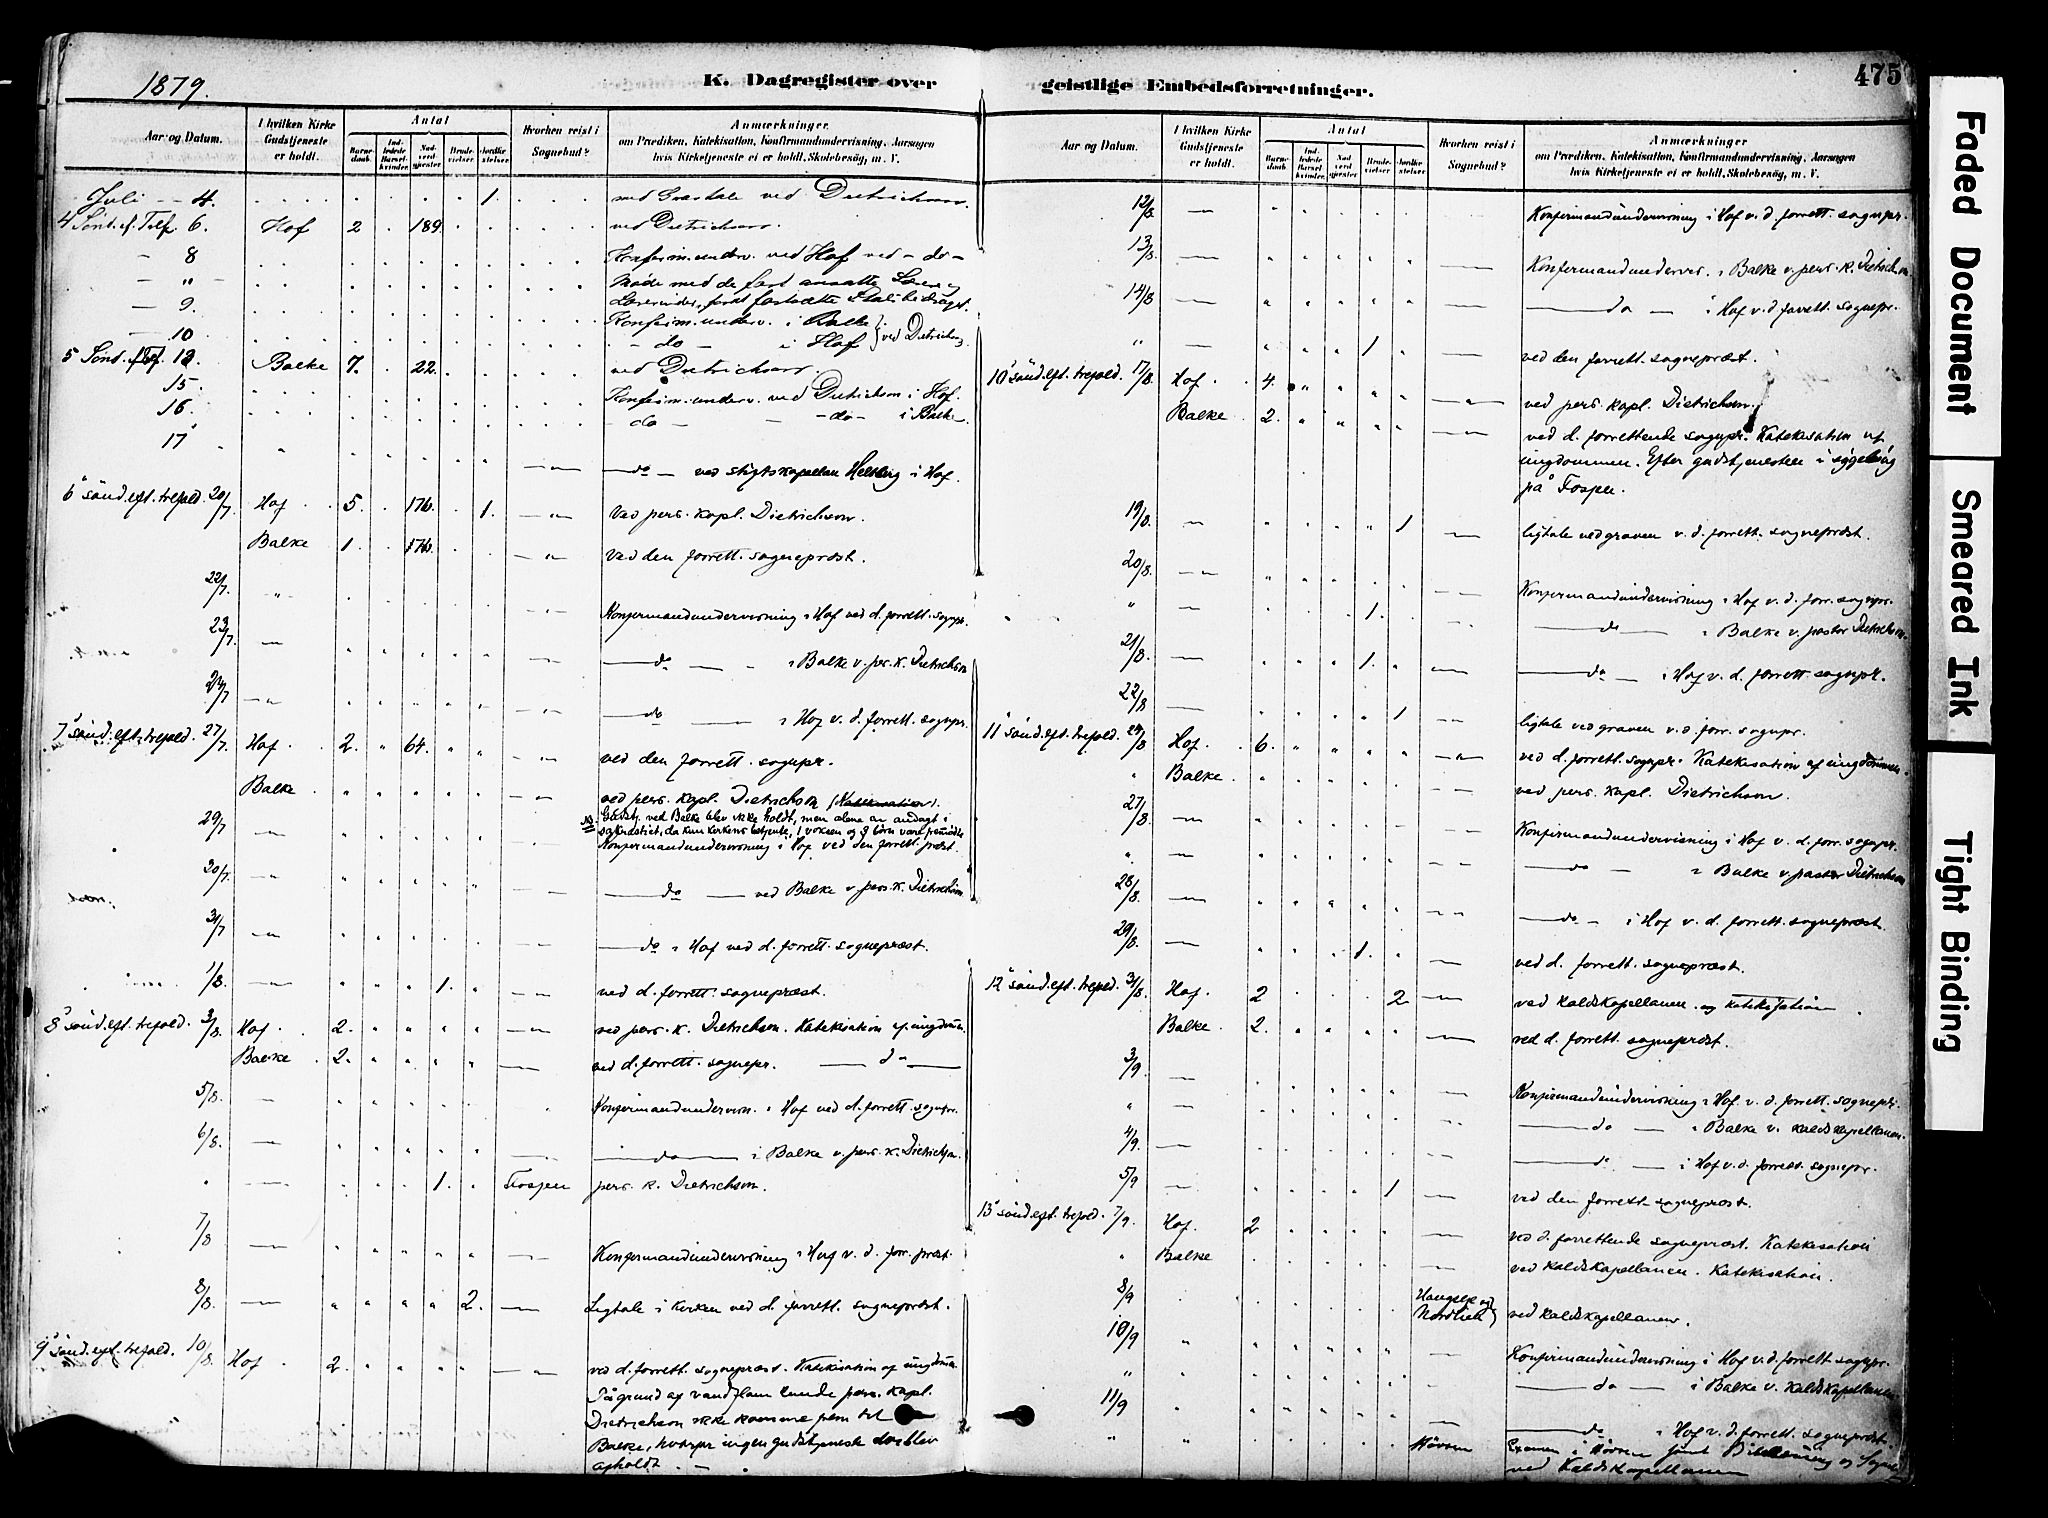 1879.
K. Dagregister over
Aar og Datum.
I hvilken Kirke Gudstjeneste er holdt.
Antal
Barnedaab. Indledede Barselkvinder. Nadverdgjæster Brudevielser. Jordfæstelser.
Hvorhen reist i Sognebud?
Anmærkninger
om Prædiken, Katekisation, Konfirmandundervisning, Aarsagen
hvis Kirketjeneste ei er holdt, Skolebesög, m. V.
Juli - - 4. 1. ved Dietrichson.
4 Sönt. ef. Tref. 6. Hof 2 189. ved Dietrichson.
- 8 Konfirm. underv. ved Hof ved - do -
- " - Möde med de fast ansatte Lærere og
Lærerinder,
- 9. Konfirm. underv. i Balke } ved Dietrichson
- 10 - do - i Hof
5 Sönt. ef. Tref. 13. Balke 7. 22. ved Dietrichson.
15. Konfirm. underv. ved Dietrichson i Hof.
16. - do - - do - i Balke
17 - do - ved stiftskapellan Hellberg i Hof.
6te sönd. eft. trefold. 20/7. Hof 5. 176. 1. ved pers. kapl. Dietrichson.
Balke 1. 176. ved den forrett. sognepræst.
22/7. Konfirmandundervisning i Hof ved d. forrett. sognpr.
23/7. do i Balke v. pers. k. Dietrichson
24/7 do i Hof v. d. forrett. sognepr.
7de sönd. eft. trefold. 27/7. Hof 2. 64. ved den forrett. sognepr.
Balke ved pers. kapl. Dietrichson
NB. Gudstj. ved Balke blev ikke holdt, men alene en andagt i
sakristiet, da kun kirkens betjente, 1 voxen og 9 börn vare
29/7 Konfirmandundervisning i Hof ved den forrett. præst.
30/7. do ved Balke v. pers. k. Dietrichson
31/7 do i Hof ved d. forrett. sognepræst.
1/8. 1. ved d. forrett. sognepræst.
8de sönd. eft. trefold. 3/8. Hof 2. ved pers. k. Dietrichson. Katekisation af ungdom.
Balke 2. ved d. forrett. sognepr. do
5/8. Konfirmandundervisn. i Hof ved d. forrett. sognpr.
6/8. do i Balke v. pers. k. Dietrichson.
1. pers. k. Dietrichson.
7/8 Konfirmandundervisning i Hof v. d. forr. præst.
8/8. 2. Ligtale i kirken ved d. forrett. sognepræst.
9de sönd. eft. trefold. 10/8. Hof 2. ved d. forrett. sognepræst. Katekisation af ungdom.
På grund af vandflom kunde pers. kapl.
Dietrichson ikke komme frem til
Balke, hvorfor ingen gudstjeneste der blev
afholdt.
geistlige Embedsforretninger.
475
Aar og Datum.
I hvilken Kirke Gudstjeneste er holdt.
Antal
Barnedaab. Indledede Barselkvinder. Nadverdgjæster Brudevielser. Jordfæstelser.
Hvorhen reist i Sognebud?
Anmærkninger
om Prædiken, Katekisation, Konfirmandundervisning, Aarsagen
hvis Kirketjeneste ei er holdt, Skolebesög, m. V.
12/8. Konfirmandundervisning i Hof v. d. forrett. sognepr.
13/8. Konfirmandundervis. i Balke v. pers. k. Dietrichson
14/8 do i Hof v. d. forrett. sognepr.
" 1 ved den forrett. sognepræst.
10de sönd. eft. trefold. 17/8. Hof 4. ved pers. kapl. Dietrichson.
Balke 2. ved d. forrettende sognepr. Katekisation af
ungdommen. Efter gudstjenesten i sygebesög
på
19/8. 1 ligtale ved graven v. d. forrett. sognepræst.
20/8. Konfirmandundervisning i Hof v. d. forr. sognpr.
" 1. do i Balke v. pastor Dietrichson.
21/8. 1. do i Hof v. d. forrett. sognepr.
22/8 1 ligtale ved graven v. d. forr. sognpr.
11te sönd. eft. trefold. 24/8 Hof 6. ved d. forrett. sognpr. Katekisation af ungdommen.
" Balke ved pers. kapl. Dietrichson.
27/8. Konfirmandundervisning i Hof v. d. forr. sognpr.
" do i Balke v. pastor Dietrichson
28/8. do i Hof v. d. forrett. sognepræst.
29/8. 1. ved d. forrett. sognepræst.
12te sönd. eft. trefold. 31/8. Hof. 2 2 ved kaldskapellanen. og katekisation
Balke 2. ved d. forrett. sognepræst.
3/9. Konfirmandundervisning i Hof v. d. forrett. sognepr.
" do i Balke v. kaldskapellanen.
4/9. do i Hof v. d. forrett. sognepr.
5/9 1 ved den forrett. sognepræst.
13de sönd. eft. trefold. 7/9. Hof. 2 ved d. forrettende sognepræst. Katekisation
" Balke ved kaldskapellanen. Katekisation.
8/9 ved kaldskapellanen.
10/9 Konfirmandundervisning i Hof v. d. forrett. sognpr.
" do i Balke v. kaldskapellanen
11/9 do i Hof v. d. forrett. sognepræst.
" ved Kaldskapellanen
Faded Document
Smeared Ink
Tight Binding